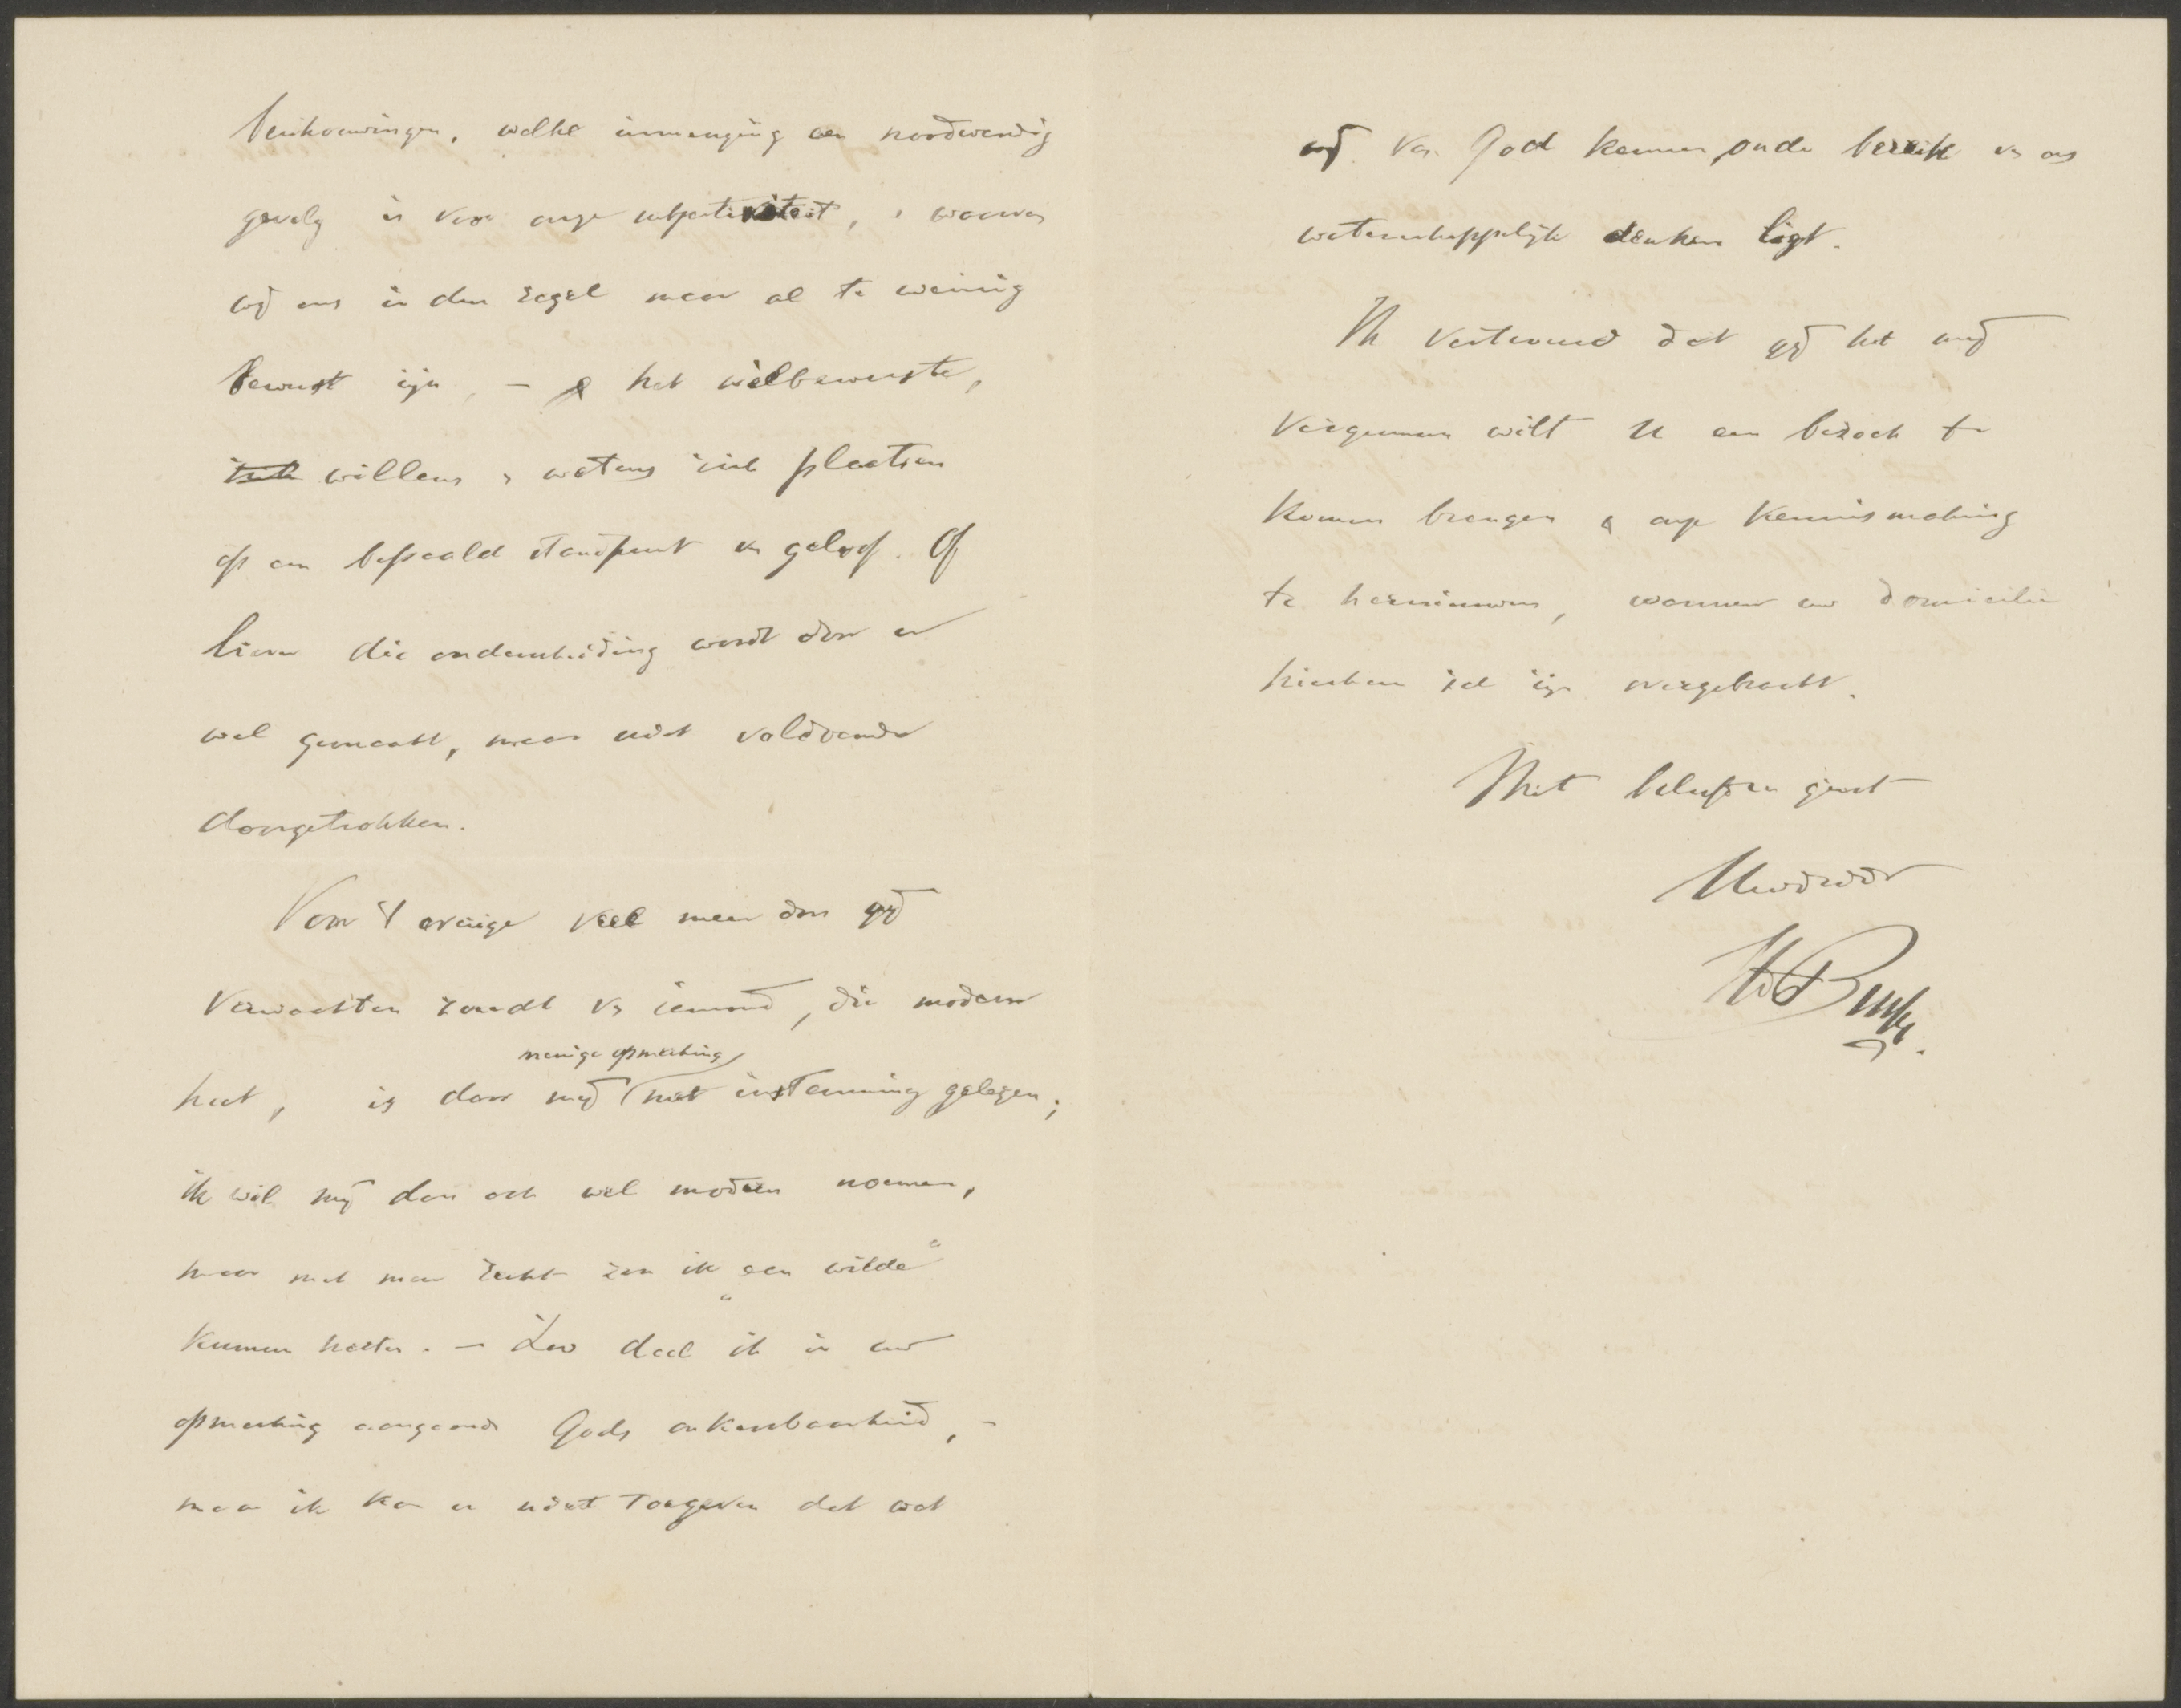 beschouwingen, welke inmenging een noodwendig
gevolg is van onze subjectiviteit, & waarvan
wij ons in den regel maar al te weinig
bewust zijn, – & het welbewuste,
willens & wetens zich plaatsen
op een bepaald standpunt van geloof. Of
liever die onderscheiding wordt door u
wel gemaakt, maar niet voldoende
doorgetrokken.
Voor 't overige veel meer dan gij
verwachten zoudt van iemand, die modern
menige opmerking
heet, is door mij met instemming gelezen;
ik wil mij dan ook wel modern noemen,
maar met meer recht zou ik „een wilde"
kunnen heeten. – Zoo deel ik in uw
opmerking aangaande Gods onkenbaarheid, –
maar ik kan u niet toegeven dat wat
wij van God kennen, onder bereik van ons
wetenschappelijk denken ligt.
Ik vertrouw dat gij het mij
vergunnen wilt U een bezoek te
komen brengen & onze kennismaking
te hernieuwen, wanneer uw domicilie
hierheen zal zijn overgebracht.
Met beleefden groet
Uwdwdr